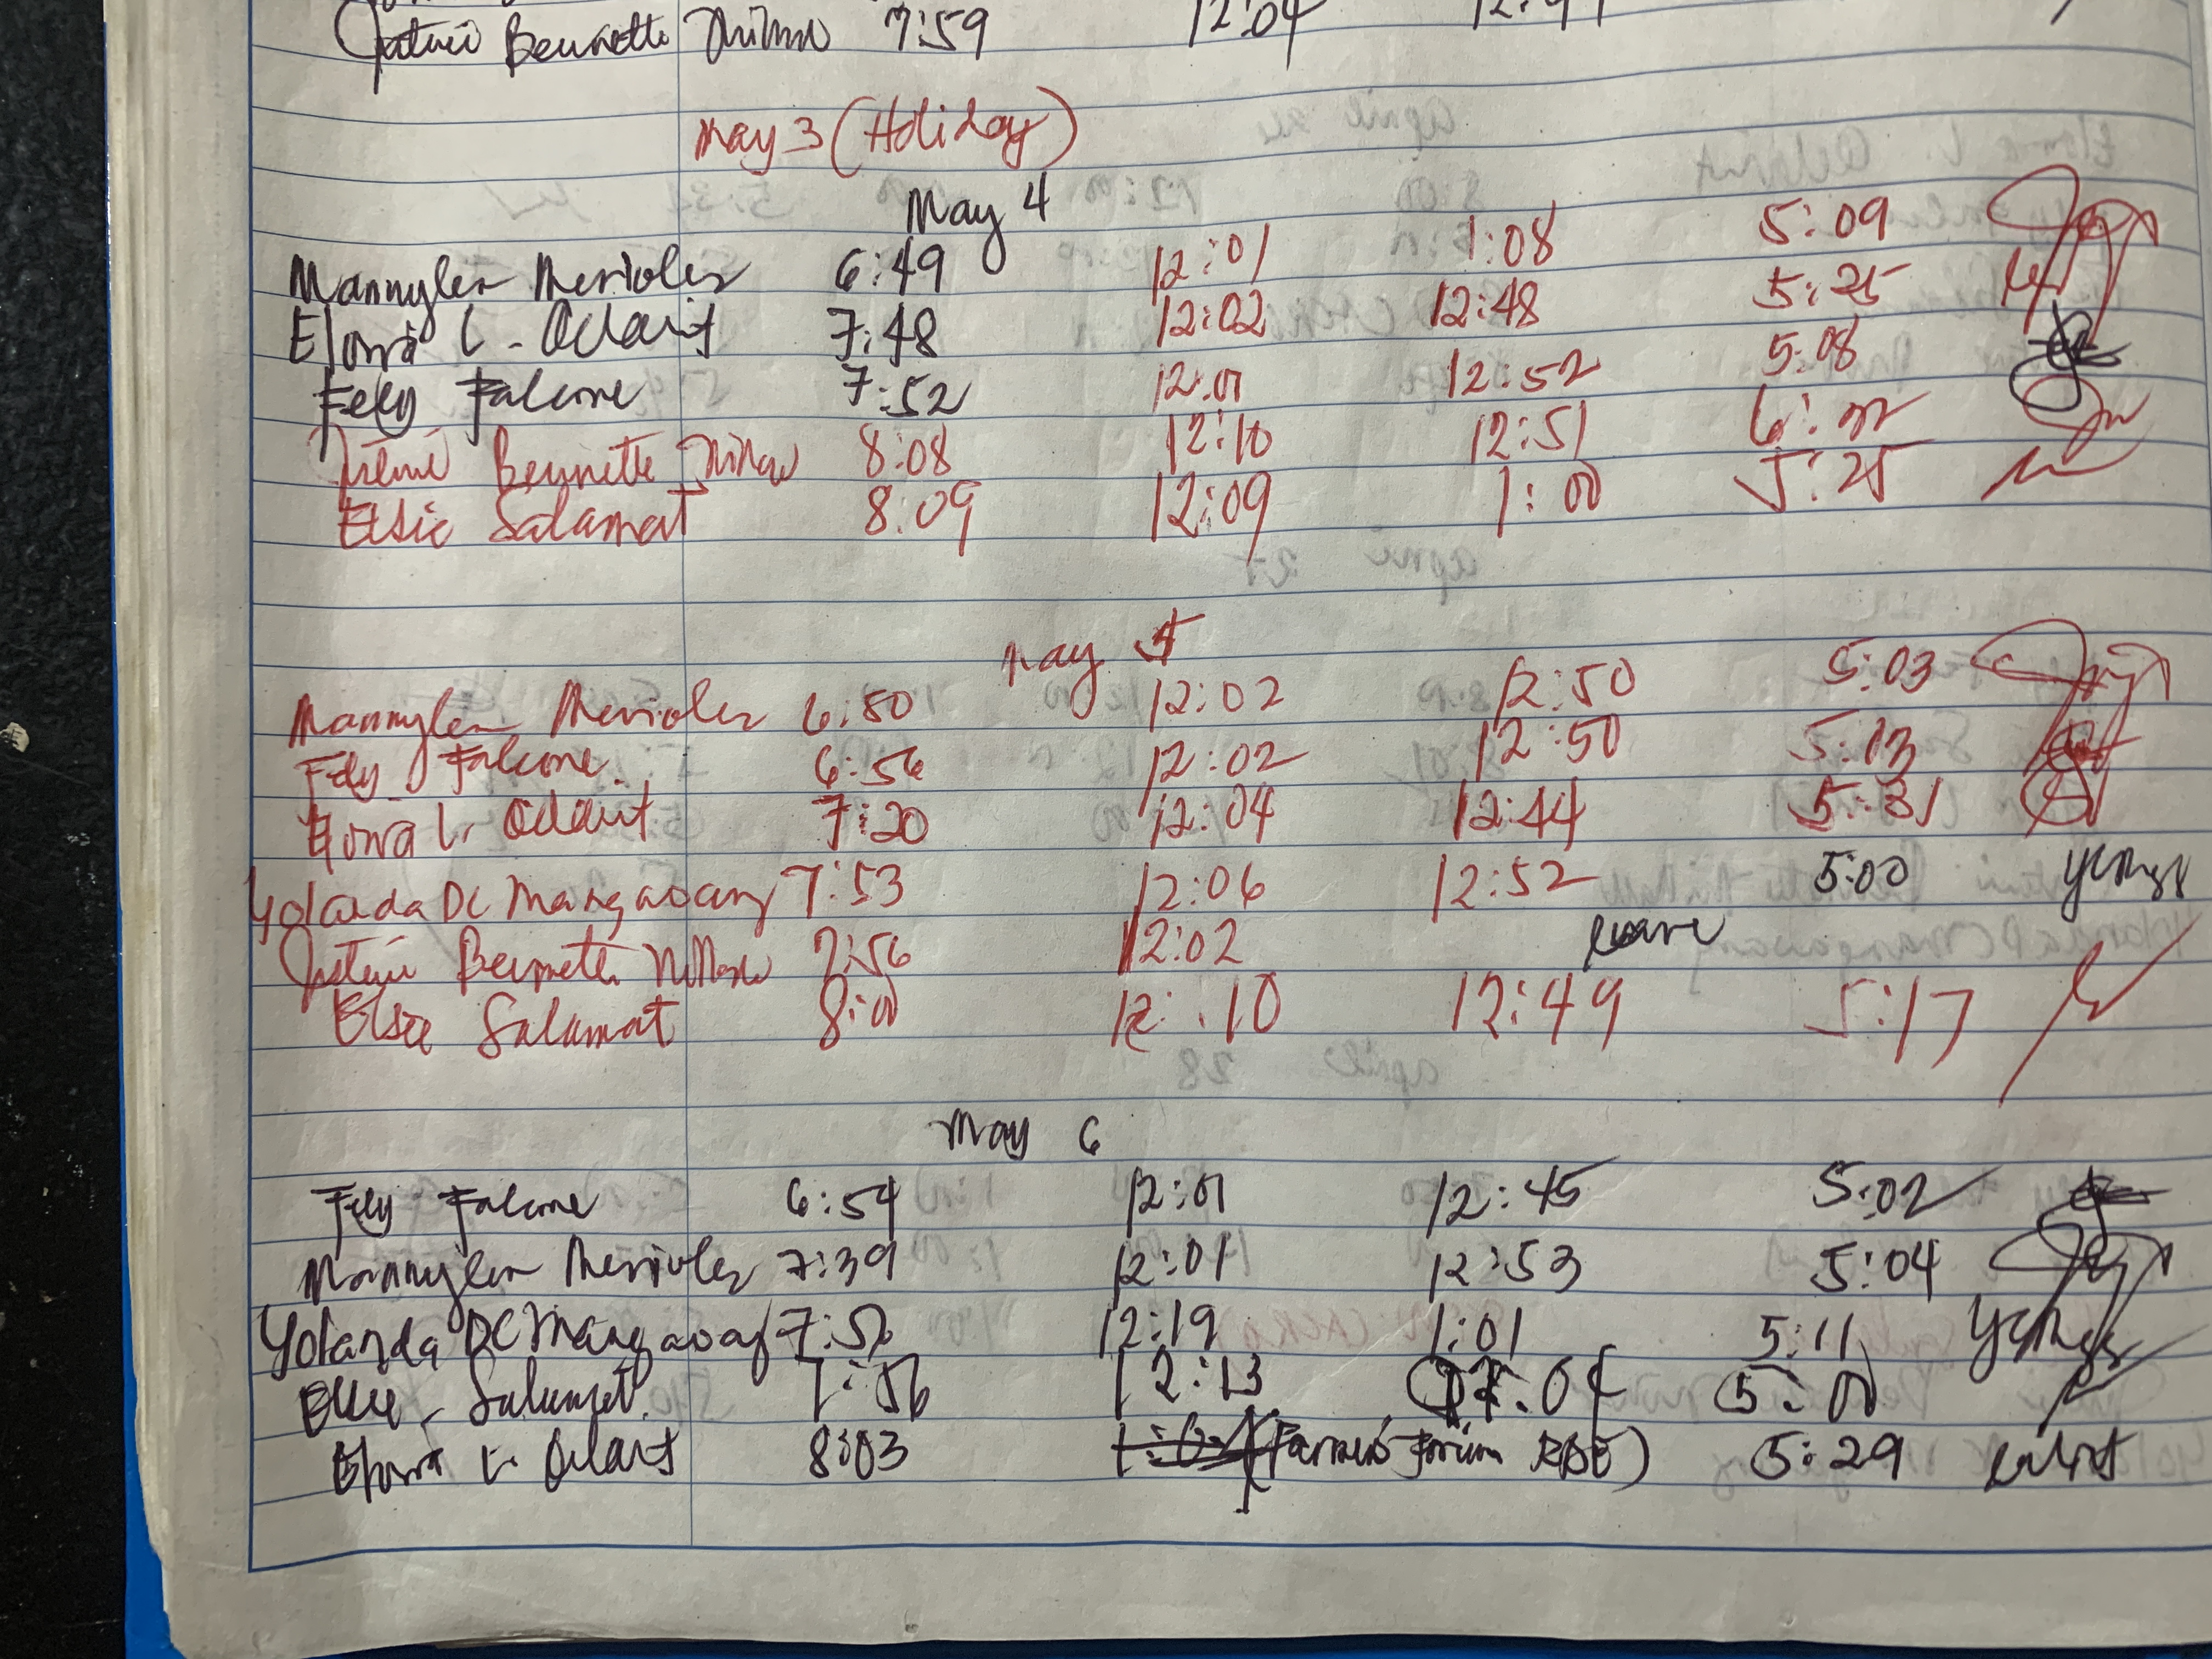 Bennette 7:59 12:04
May 3 (Holiday)
May 4
Mannylen Merioles 6:49 12:01 1:08 5:09
Elowa L. Odait 7:48 12:02 12:48 5:25
Fely Falcone 7:52 12:01 12:52 5:08
Bennette 8:08 12:10 12:51 6:22
Elsie Salamat 8:09 12:09 1:00 5:25
May 5
Mannylen Merioles 6:50 12:02 12:50 5:03
Fely Falcone 6:56 12:02 12:50 5:13
Elowa L. Odait 7:20 12:04 12:44 5:31
Yolanda DC Mangaoang 7:53 12:06 12:52 5:00
Bennette 7:56 12:02 leave
Elsie Salamat 8:00 12:10 12:49 5:17
May 6
Fely Falcone 6:54 12:01 12:45 5:02
Mannylen Merioles 7:39 12:01 12:53 5:04
Yolanda DC Mangaoang 12:19 1:01 5:11
Elsie Salamat 7:56 12:13 5:00
Elowa L. Odait 8:03 (Farmers Forum 5:29